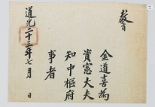 敎
金道喜爲
資憲大夫
知中樞府
事者
道光十三年七月 日